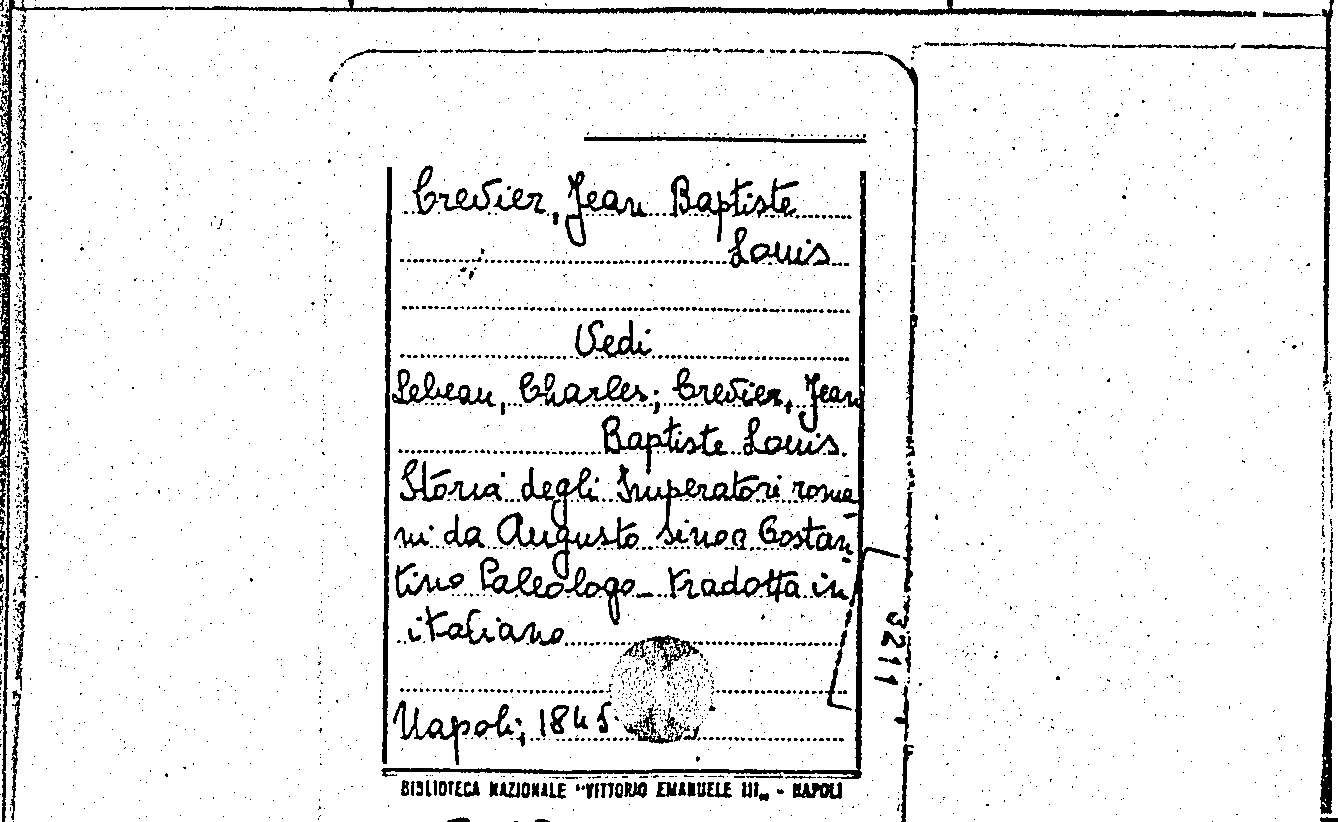 Crevier, Jean Baptiste
Louis
Vedi
Lebeau, Charles; Crevier, Jean
Baptiste Louis.
Storia degli Imperatori roma
ni da Augusto sino a Costan
tino Paleologo - tradotta in
italiano
Napoli; 1845
3211
BIBLIOTECA NAZIONALE "VITTORIO EMANUELE III„ - NAPOLI